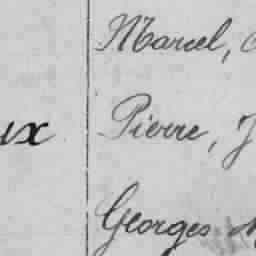 Marcel,
ux Pierre, J
Georges